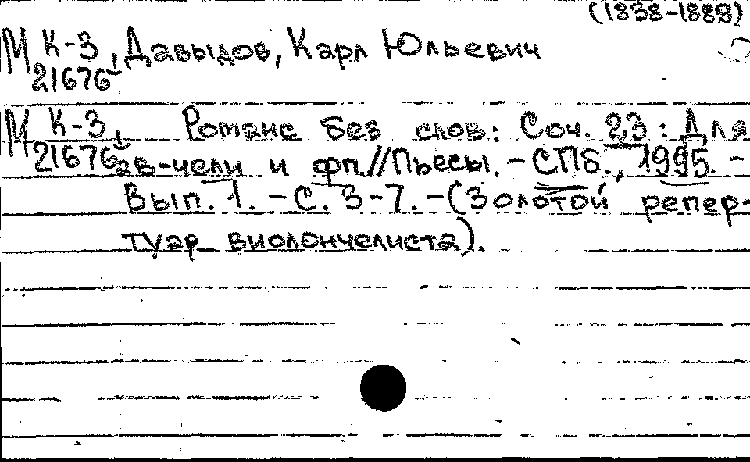 (1838-1889)
М К-3, Давыдов, Карл Юльевич
21676
М К-3, Романс без слов: Соч. 23: Для
21676 в-чели и фп.//Пьесы. - СПб., 1995. -
Вып. 1. - С. 3-7. - (Золотой репер-
туар виолончелиста).